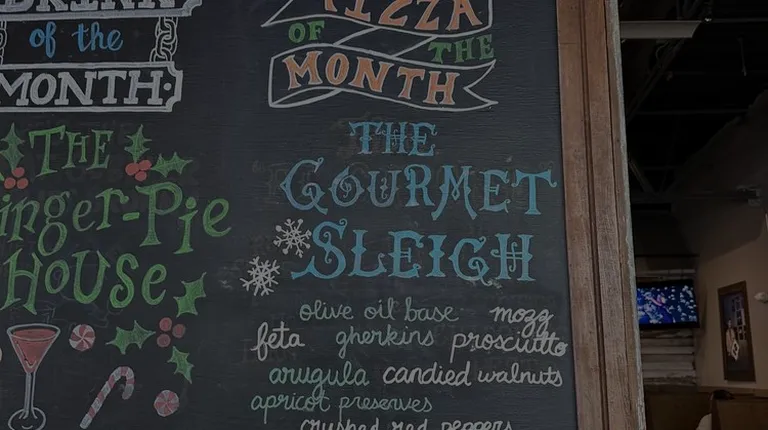 DRINK
of the
MONTH
THE
Ginger-Pie
HOUSE
PIZZA
OF THE
MONTH
THE
GOURMET
SLEIGH
olive oil base mozz
feta gherkins prosciutto
arugula candied walnuts
apricot preserves
crushed red peppers